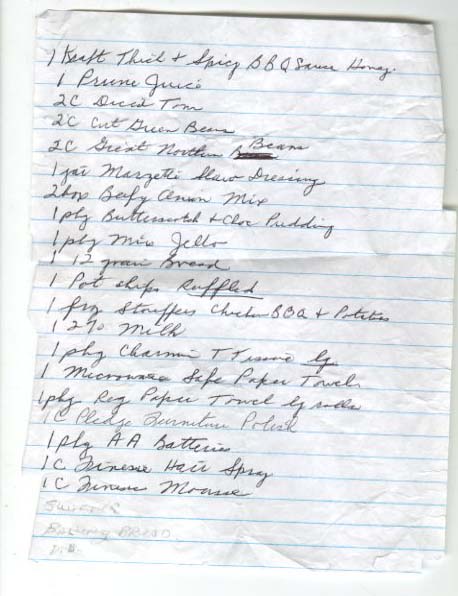 1 Kraft Thick + Spicy BBQ Sauce Honey.
1 Prune Juice
2C Diced Tom
2C Cut Green Beans
2C Great Northern Beans
1 jar Marzetti Slaw Dressing
2 box Beefy Onion Mix
1 pkg Butterscotch + Choc Pudding
1 pkg Mix Jello
1 12 grain Bread
1 Pot chips Ruffled
1 frz Stouffers Chicken BBQ + Potatoes
1 2% Milk
1 pkg Charmin T Tissue lg.
1 Microwave Safe Paper Towels
1 pkg Reg Paper Towel lg rolls
1C Pledge Furniture Polish
1 pkg AA Batteries
1C Finesse Hair Spray
1C Finesse Mousse
BREAD